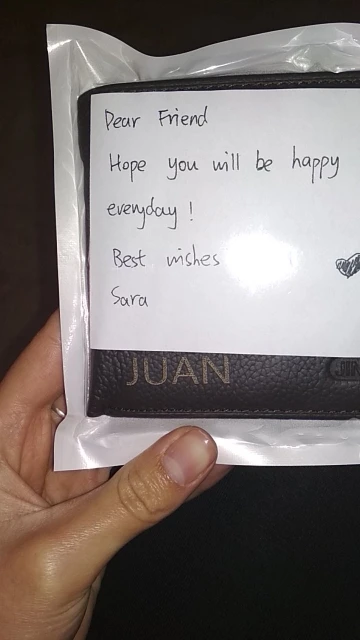 Dear Friend
Hope you will be happy
everyday !
Best wishes
Sara
JUAN